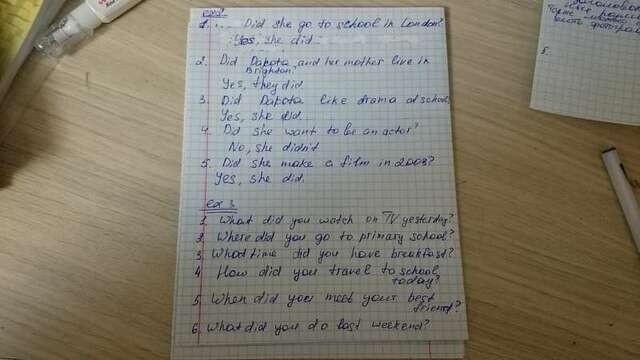 ex 2
1. ... Did she go to school in London?
Yes, she did.
2. Did Dakota, and her mother live in
Brighton,
Yes, they did
3. Did Dakota like drama at school,
Yes, she did
4. Did she want to be an actor?
No, she didn't
5. Did she make a film in 2003?
Yes, she did.
ex 3
1. What did you watch on TV yesterday?
2. Where did you go to primary school?
3. What time did you have breakfast?
4. How did you travel to school,
today?
5. When did you meet your best
friend?
6. What did you do last weekend?